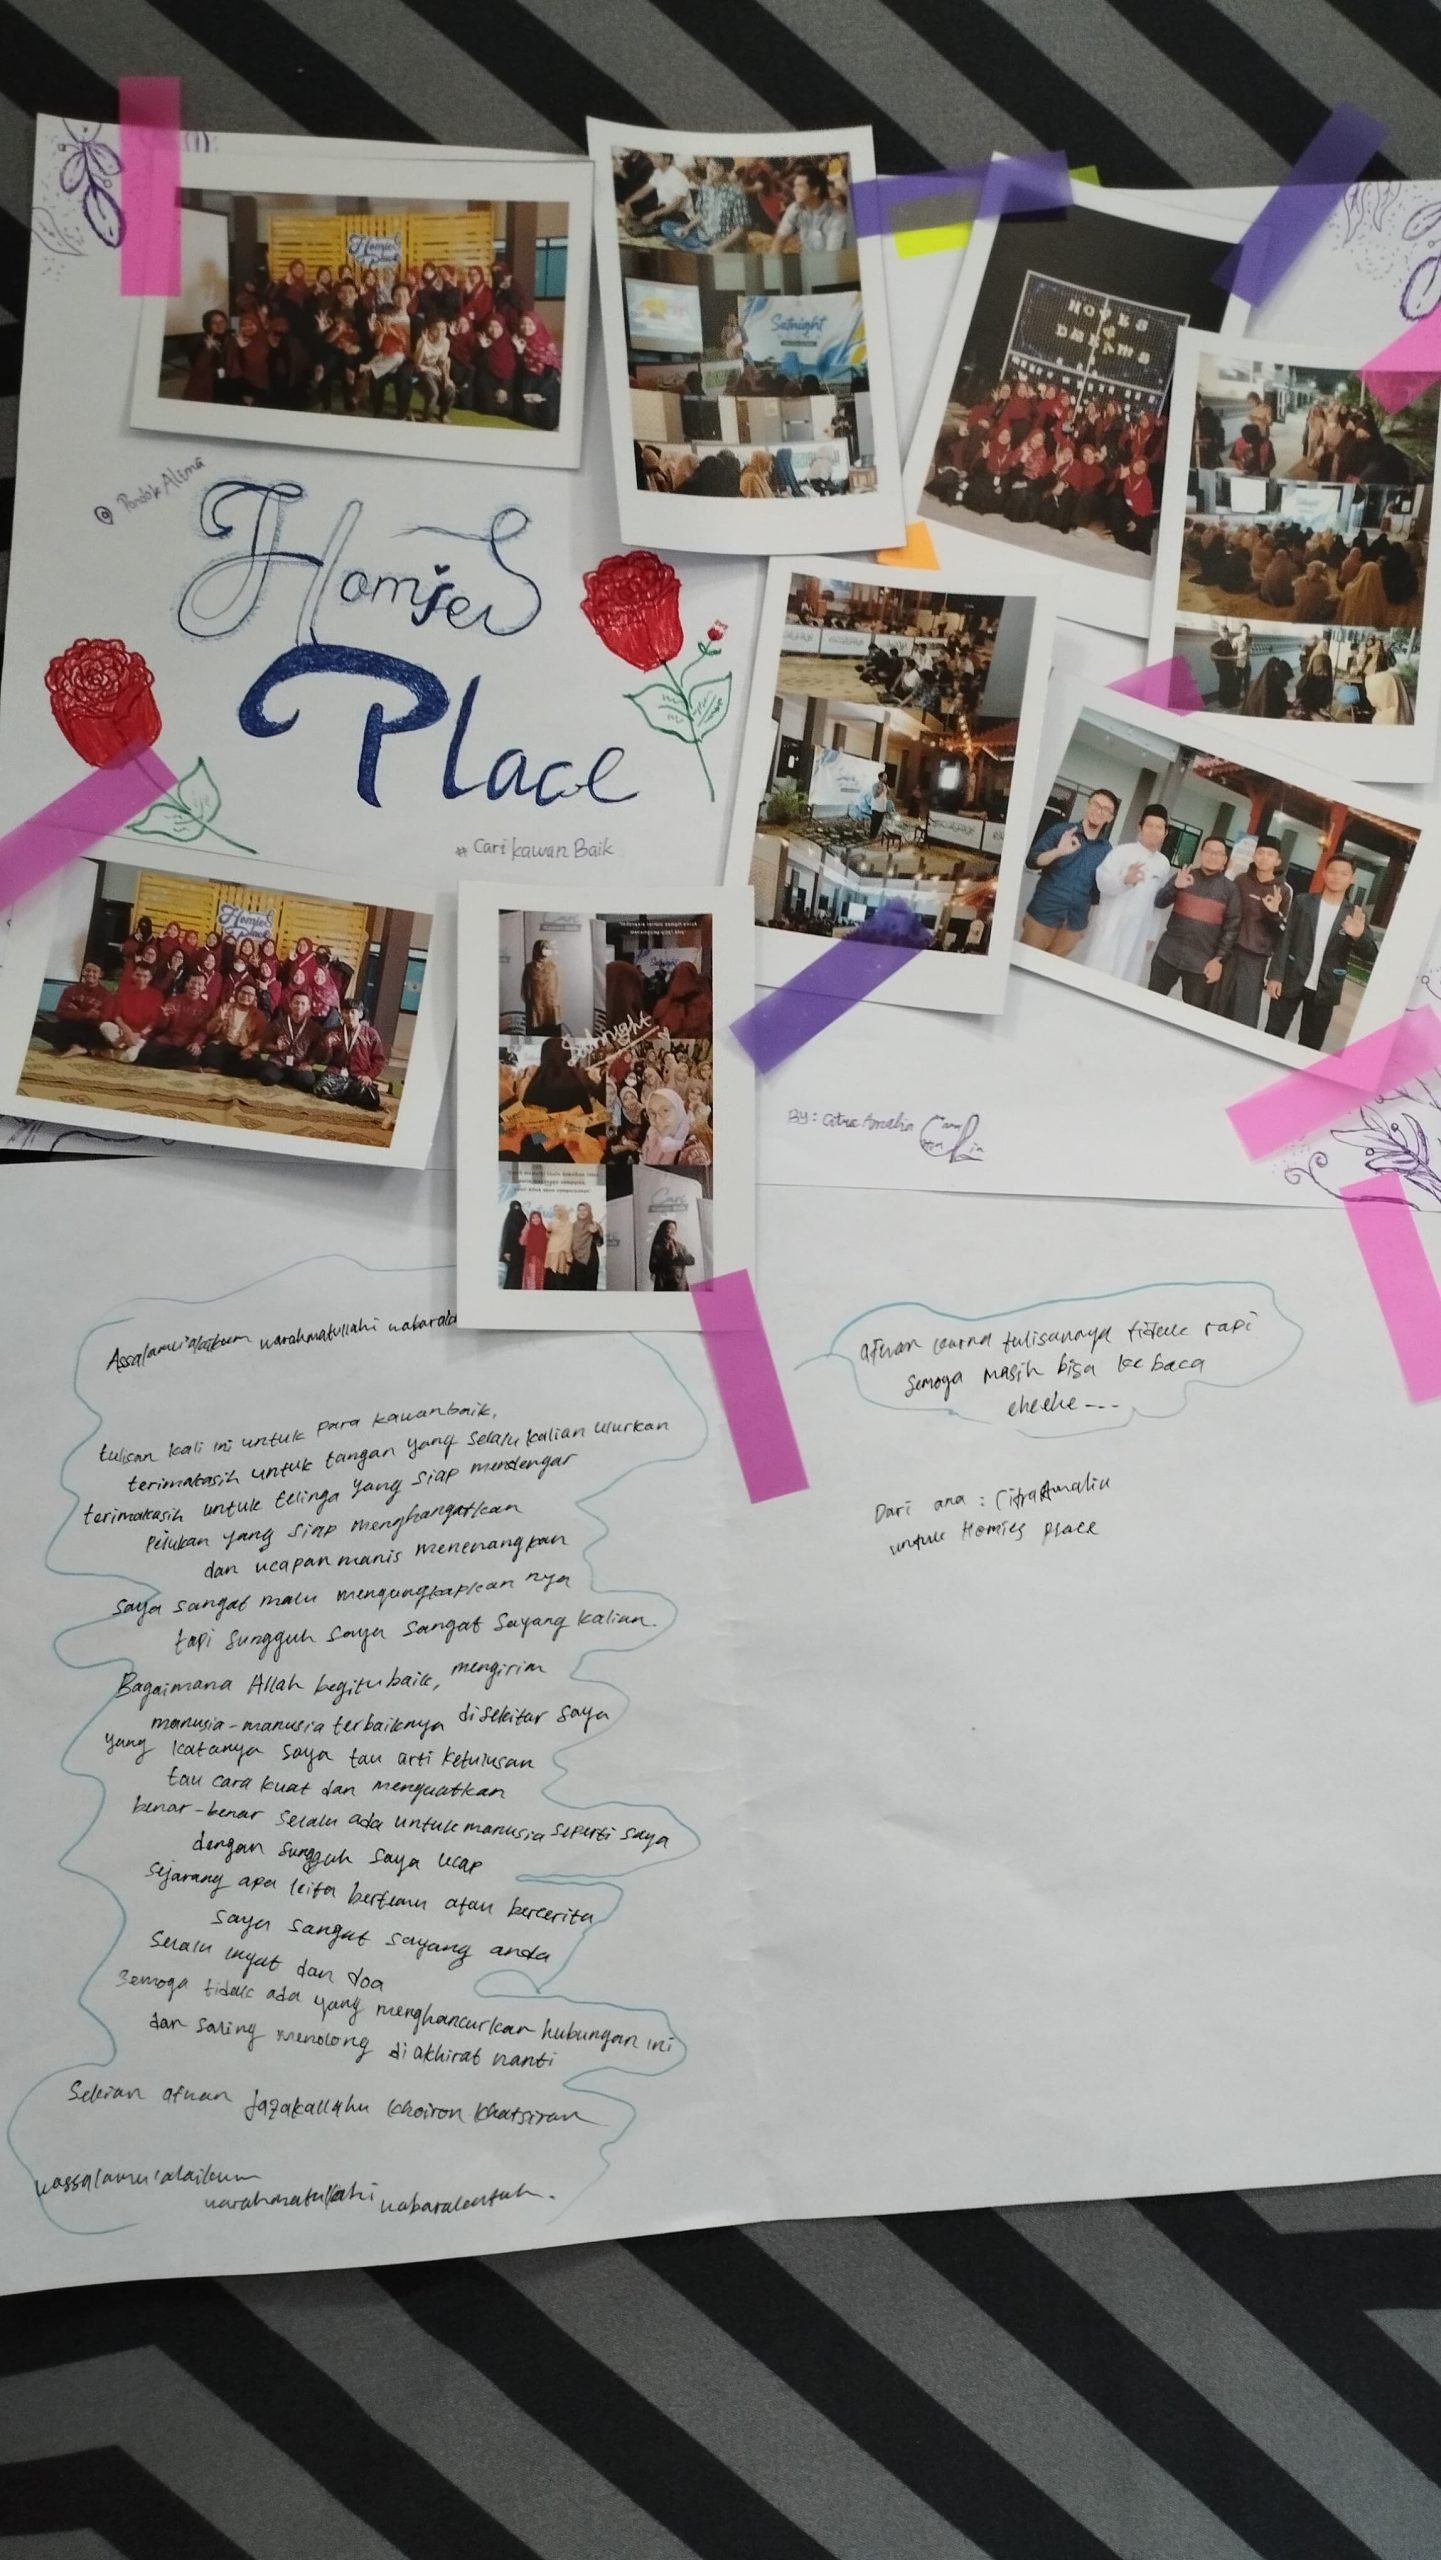 Homies
Place
Satnight
@ Pondok Alima
Homies
Place
# Cari kawan Baik
Homies
Place
Satnight
Cari
BY: Citra Amalia
Assalamu'alaikum warahmatullahi
tulisan kali ini untuk para kawanbaik,
terimakasih untuk tangan yang selalu kalian ulurkan
terimakasih untuk telinga yang siap mendengar
pelukan yang siap menghangatkan
dan ucapan manis menenangkan
saya sangat malu mengungkapkan nya
tapi sungguh saya sangat sayang kalian.
Bagaimana Allah begitu baik, mengirim
manusia-manusia terbaiknya disekitar saya
yang katanya saya tau arti ketulusan
tau cara kuat dan menguatkan
benar-benar selalu ada untuk manusia seperti saya
dengan sungguh saya ucap
sejarang apa kita bertemu atau bercerita
saya sangat sayang anda
Selalu ingat dan doa
Semoga tidak ada yang menghancurkan hubungan ini
dan saling menolong di akhirat nanti
Sekian afuan Jazakallahu khoiron khatsiran
wassalamu'alaikum
warahmatullahi wabarakatuh.
afuan karna tulisannya tidak rapi
semoga masih bisa ke baca
ehehe---
Dari ana : Citra Amalia
untuk Homies place